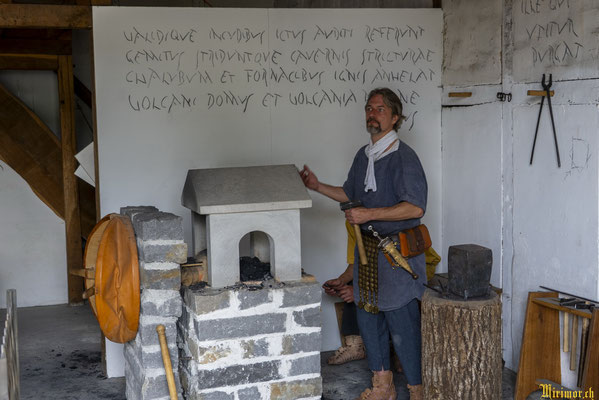 UALIDIQUE INCUDIBUS ICTUS AUDITI REFERUNT
GEMITUS STRIDUNTQUE CAUERNIS STRICTURAE
CHALYBUM ET FORNACIBUS IGNIS ANHELAT
UOLCANI DOMUS ET UOLCANIA
ILLE
Mirimor.ch